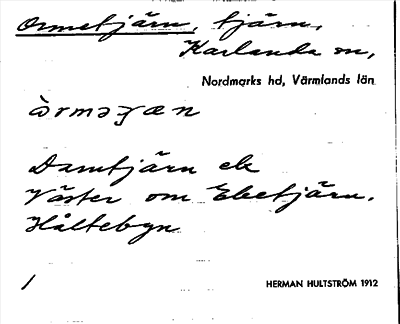 Ormetjärn, tjärn,
Karlanda sn,
Nordmarks hd, Värmlands län
òrməʒæn
Damtjärn el.
Väster om Ebetjärn.
Håltebyn
/
HERMAN HULTSTRÖM 1912